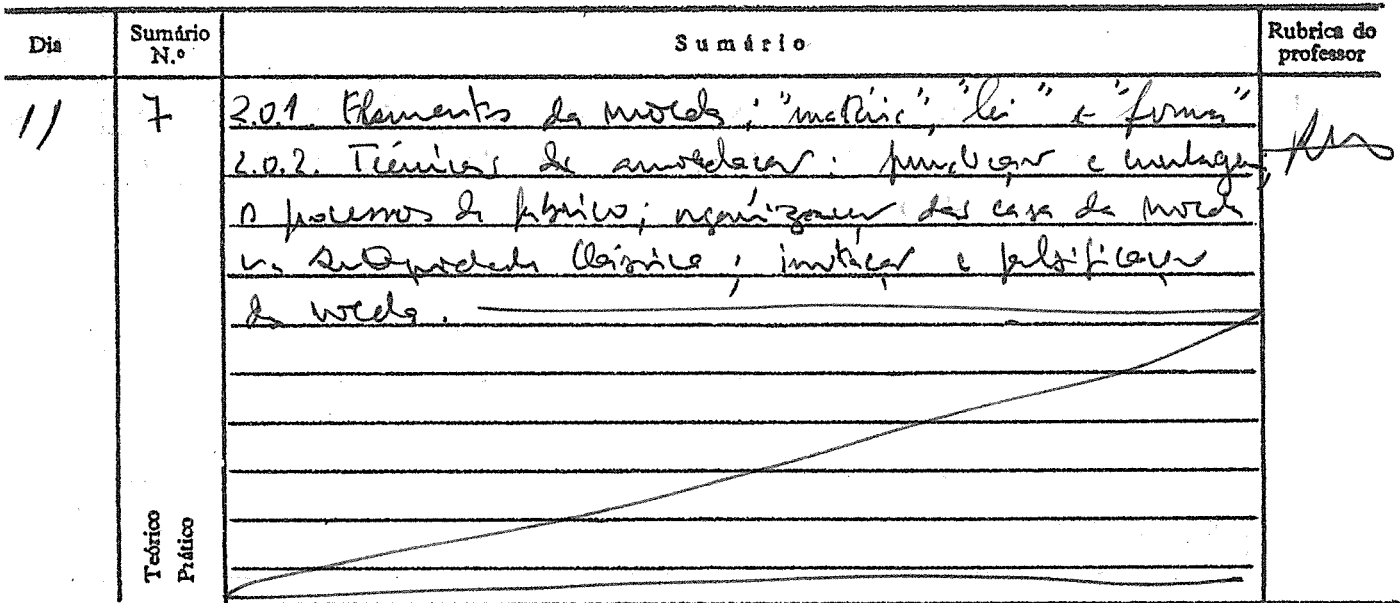 Dia
Sumário N.º
Sumário
Rubrica do professor
11
7
2.0.1. Elementos da moeda: "matéria", "lei" e "forma"
2.0.2. Técnicas de amoedação: punção e cunhagem;
o processos de fabrico; organização das casa da moeda
na Antiguidade Clássica; imitação e falsificação
da moeda.
Teórico
Prático